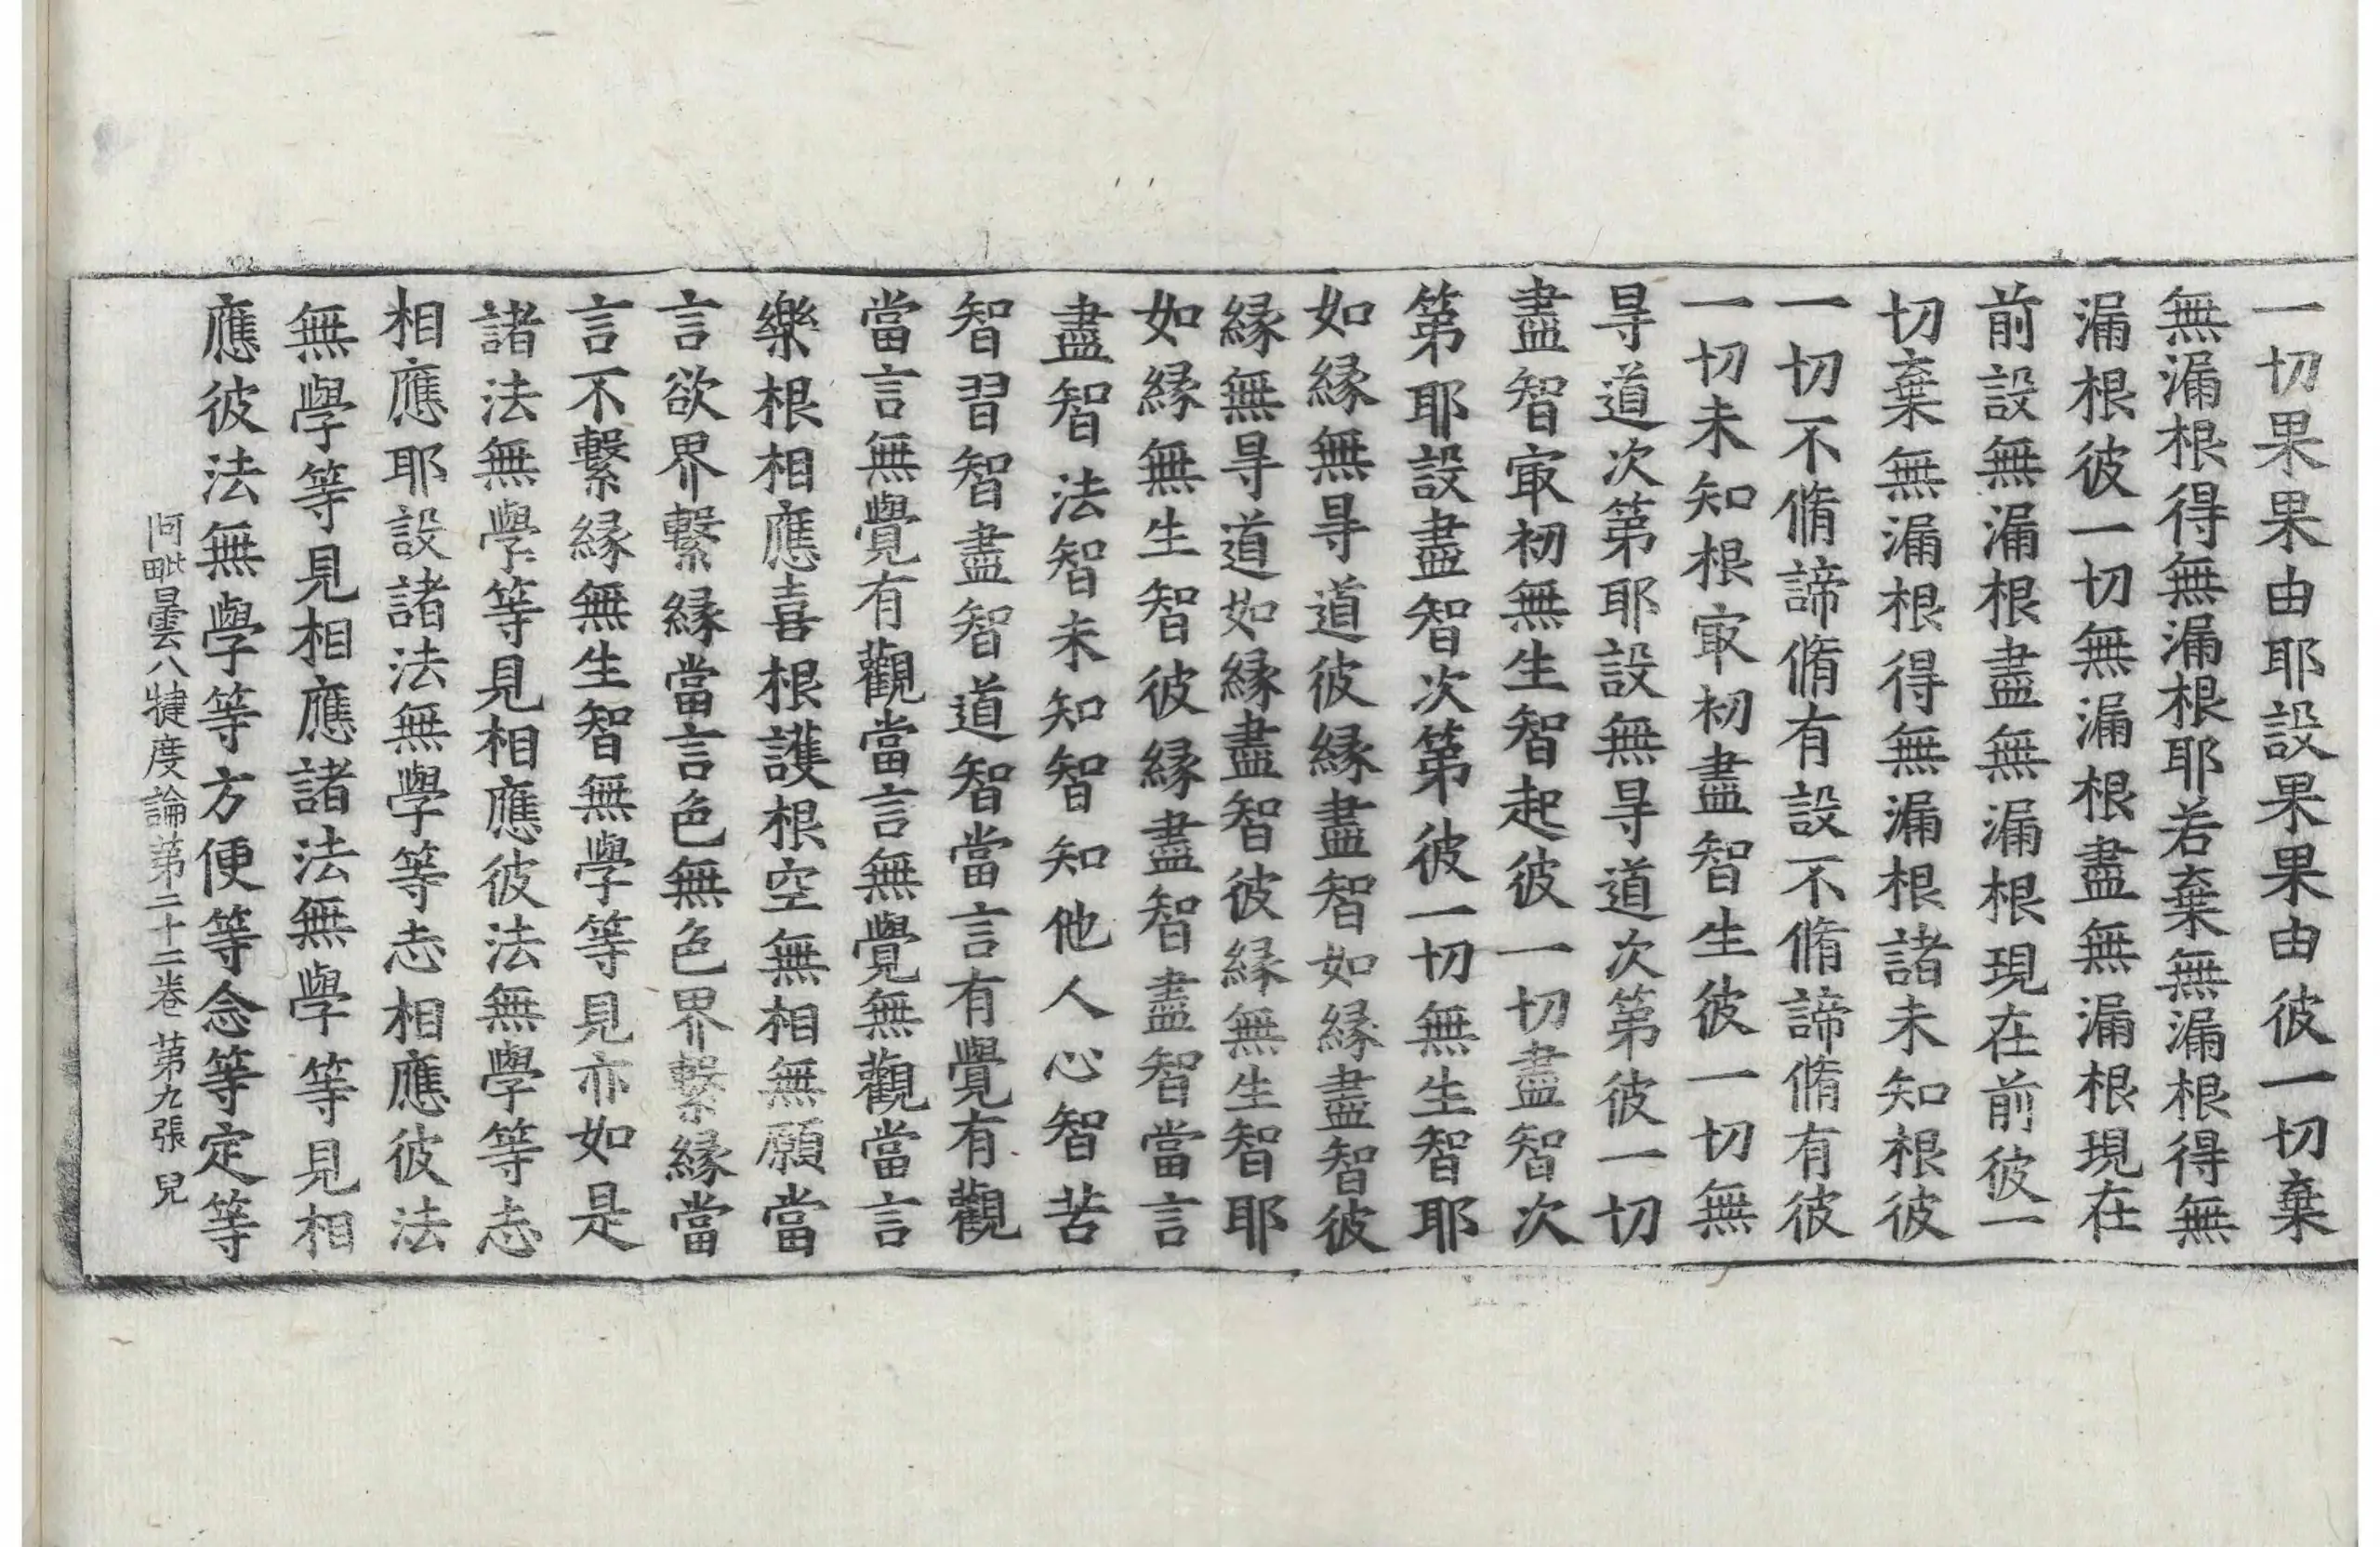 一切果果由耶設果果由彼一切棄
無漏根得無漏根耶若棄無漏根得無
漏根彼一切無漏根盡無漏根現在
前設無漏根盡無漏根現在前彼一
切棄無漏根得無漏根諸未知根彼
一切不脩諦脩有設不脩諦脩有彼
一切未知根㝡初盡智生彼一切無
㝵道次第耶設無㝵道次第彼一切
盡智㝡初無生智起彼一切盡智次
第耶設盡智次第彼一切無生智耶
如縁無㝵道彼縁盡智如縁盡智彼
縁無㝵道如縁盡智彼縁無生智耶
如縁無生智彼縁盡智盡智當言
盡智法智未知智知他人心智苦
智習智盡智道智當言有覺有觀
當言無覺有觀當言無覺無觀當言
樂根相應喜根護根空無相無願當
言欲界繫縁當言色無色界繫縁當
言不繫縁無生智無學等見亦如是
諸法無學等見相應彼法無學等志
相應耶設諸法無學等志相應彼法
無學等見相應諸法無學等見相
應彼法無學等方便等念等定等
阿毗曇八犍度論第二十二卷 第九張 皃